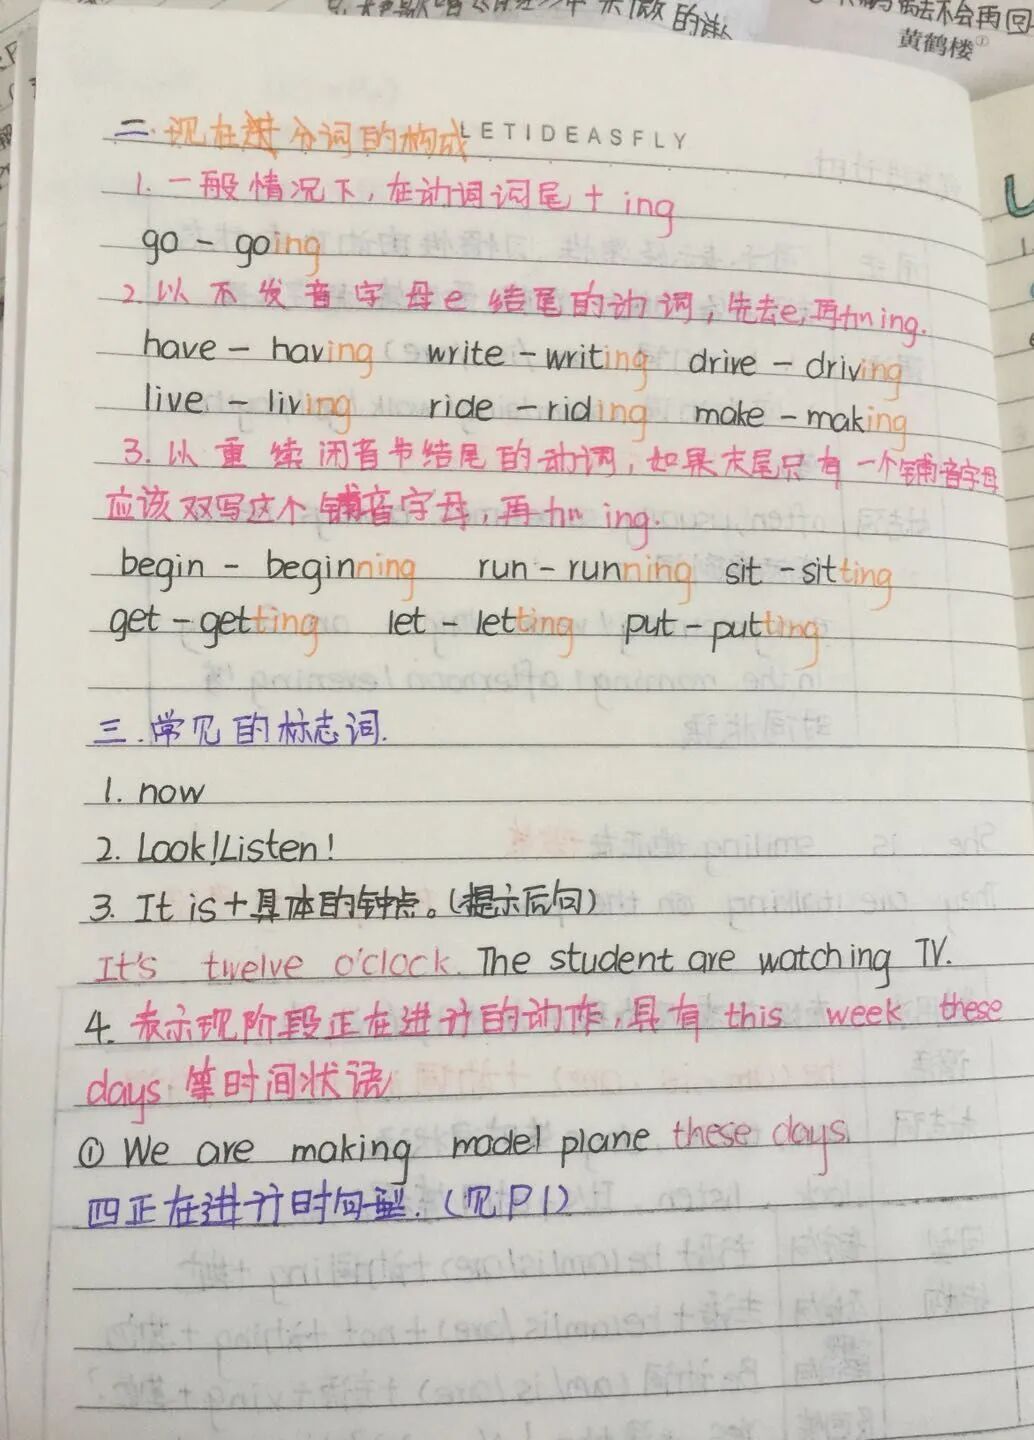 的诗人
去不会再回
黄鹤楼
二.现在进分词的构成
LETIDEASFLY
1.一般情况下,在动词词尾+ing
go - going
2.以不发音字母e结尾的动词,先去e,再加ing.
have - having write - writing drive - driving
live - living ride - riding make - making
3.以重续闭音节结尾的动词,如果末尾只有一个辅音字母
应该双写这个辅音字母,再加ing.
begin - beginning run - running sit - sitting
get - getting let - letting put - putting
三.常见的标志词.
1. now
2. Look!Listen!
3. It is+具体的钟点。(提示后句)
It's twelve o'clock. The student are watching TV.
4.表示现阶段正在进行的动作,具有this week these
days等时间状语
① We are making model plane these days
四正在进行时句型.(见P1)